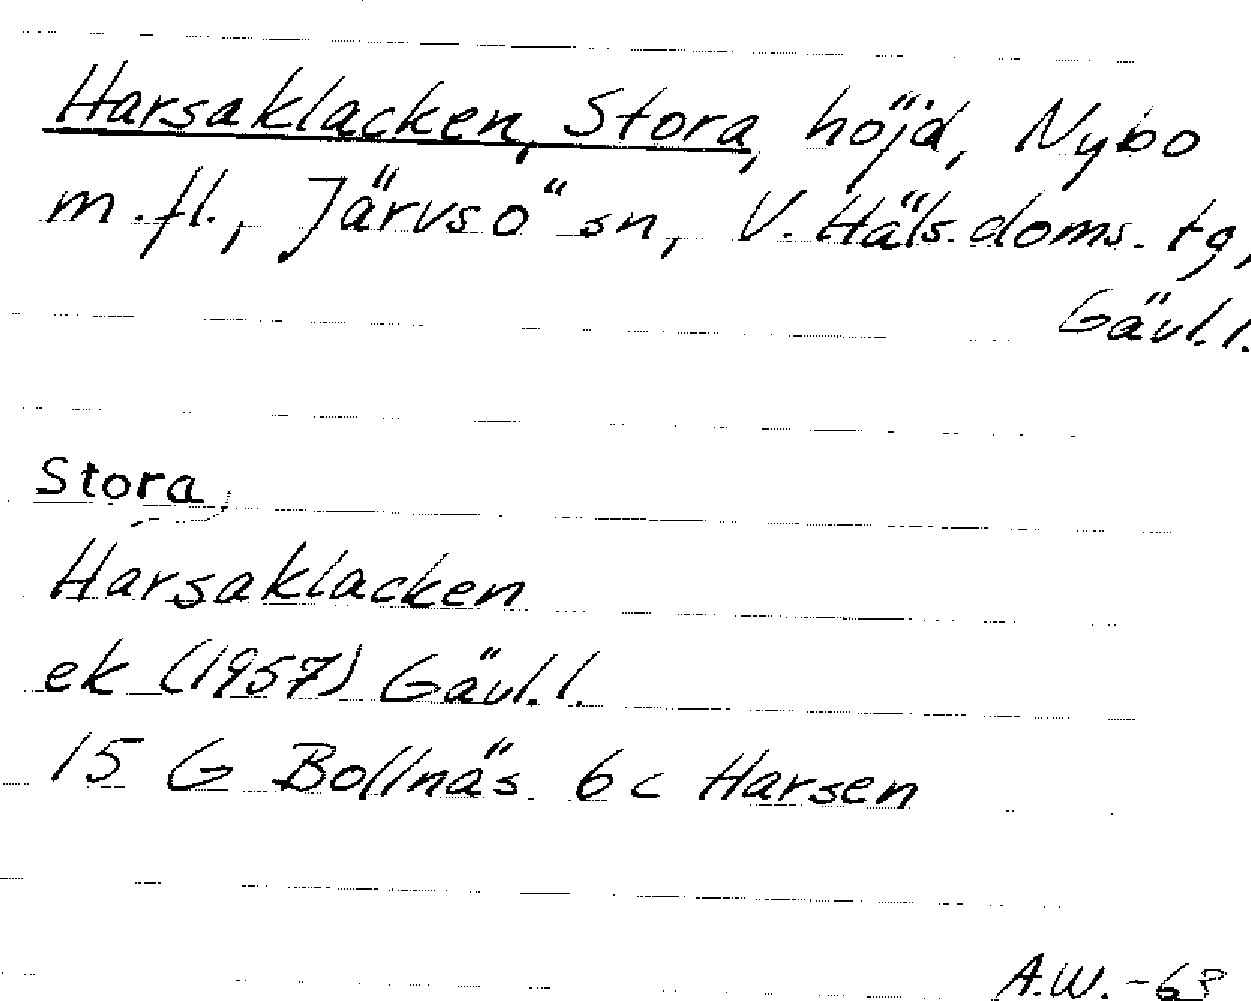 Harsaklacken, Stora, höjd, Nybo
m.fl., Järvsö sn, V. Häls. doms. tg,
Gävl.l.
Stora,
Harsaklacken
ek (1957) Gävl.l.
15 G Bollnäs 6c Harsen
A.W. -63